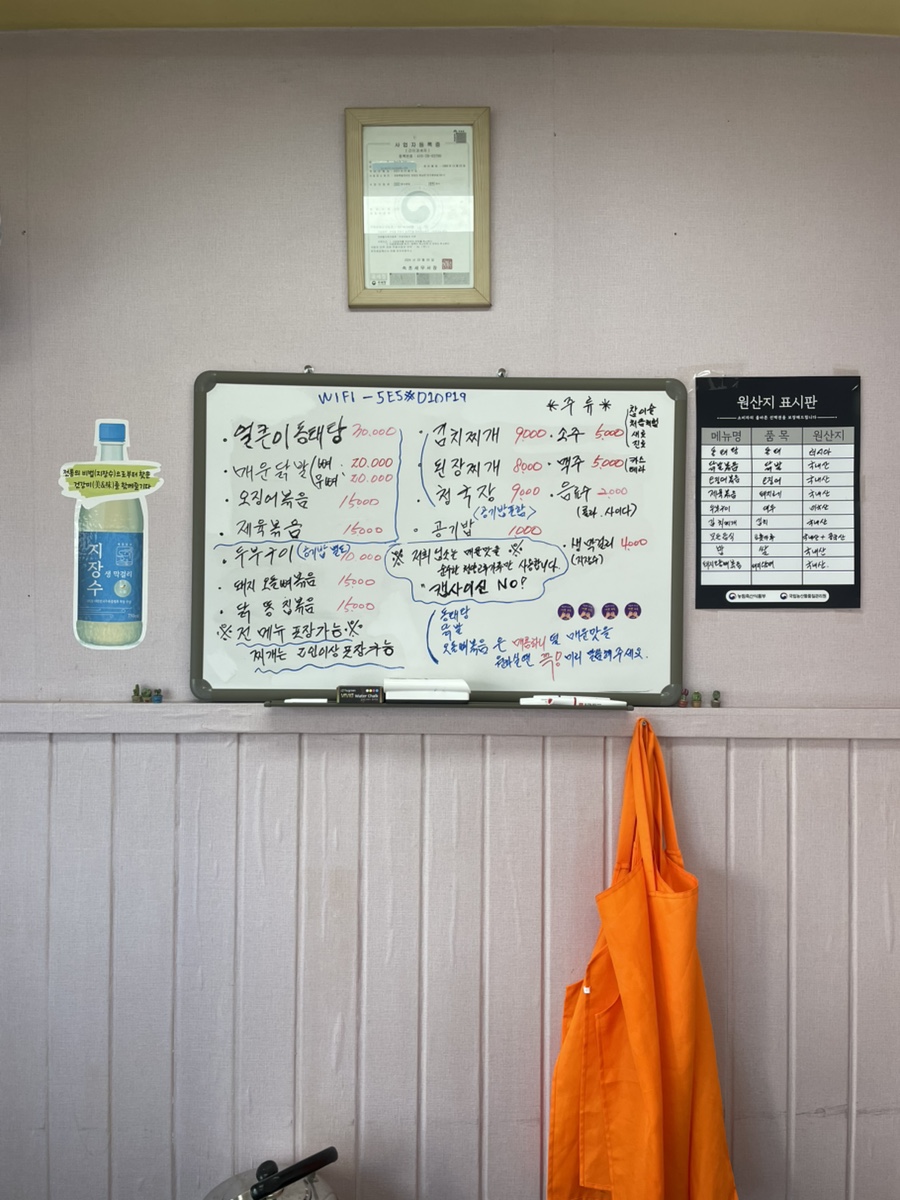 사업자등록증
WIFI - 5ES※D1DP19
· 얼큰이동태탕 30.000
· 매운닭발/뼈 · 20.000
무뼈 · 20.000
· 오징어볶음 15000
· 제육볶음 15000
· 두부구이 (공기밥 별도) 10 000
· 돼지 오돌뼈볶음 15000
· 닭 똥 집볶음 15000
※ 전 메뉴 포장가능 ※
찌개는 2인이상 포장가능
· 김치찌개 9000
· 된장찌개 8000
· 청국장 9000
<공기밥포함>
· 공기밥 1000
※ 저희 업소는 매운맛을 ※
사용합니다.
캡사이신 NO?
동태탕
닭발
오돌뼈볶음 은 매콤하니 덜 매운맛을
원하실면 꼭! 미리 말씀해주세요.
* 주류 *
· 소주 5000
참이슬
처음처럼
새로
진로
· 맥주 5000
카스
테라
· 음료수 2000
(콜라. 사이다)
· 생막걸리 4000
(지장수)
전통의 비법(지장수)으로부터 찾은
건강미(美&味)를 함께즐기다
지장수
생 막걸리
원산지 표시판
메뉴명 품 목 원산지
동태탕 동태 러시아
닭발볶음 닭발 국내산
오징어볶음 오징어 국내산
제육볶음 돼지고기 국내산
두부구이 두부
김치찌개 김치 국내산
밥 쌀 국내산
국내산.
농림축산식품부 국립농산물품질관리원
Water Chalk